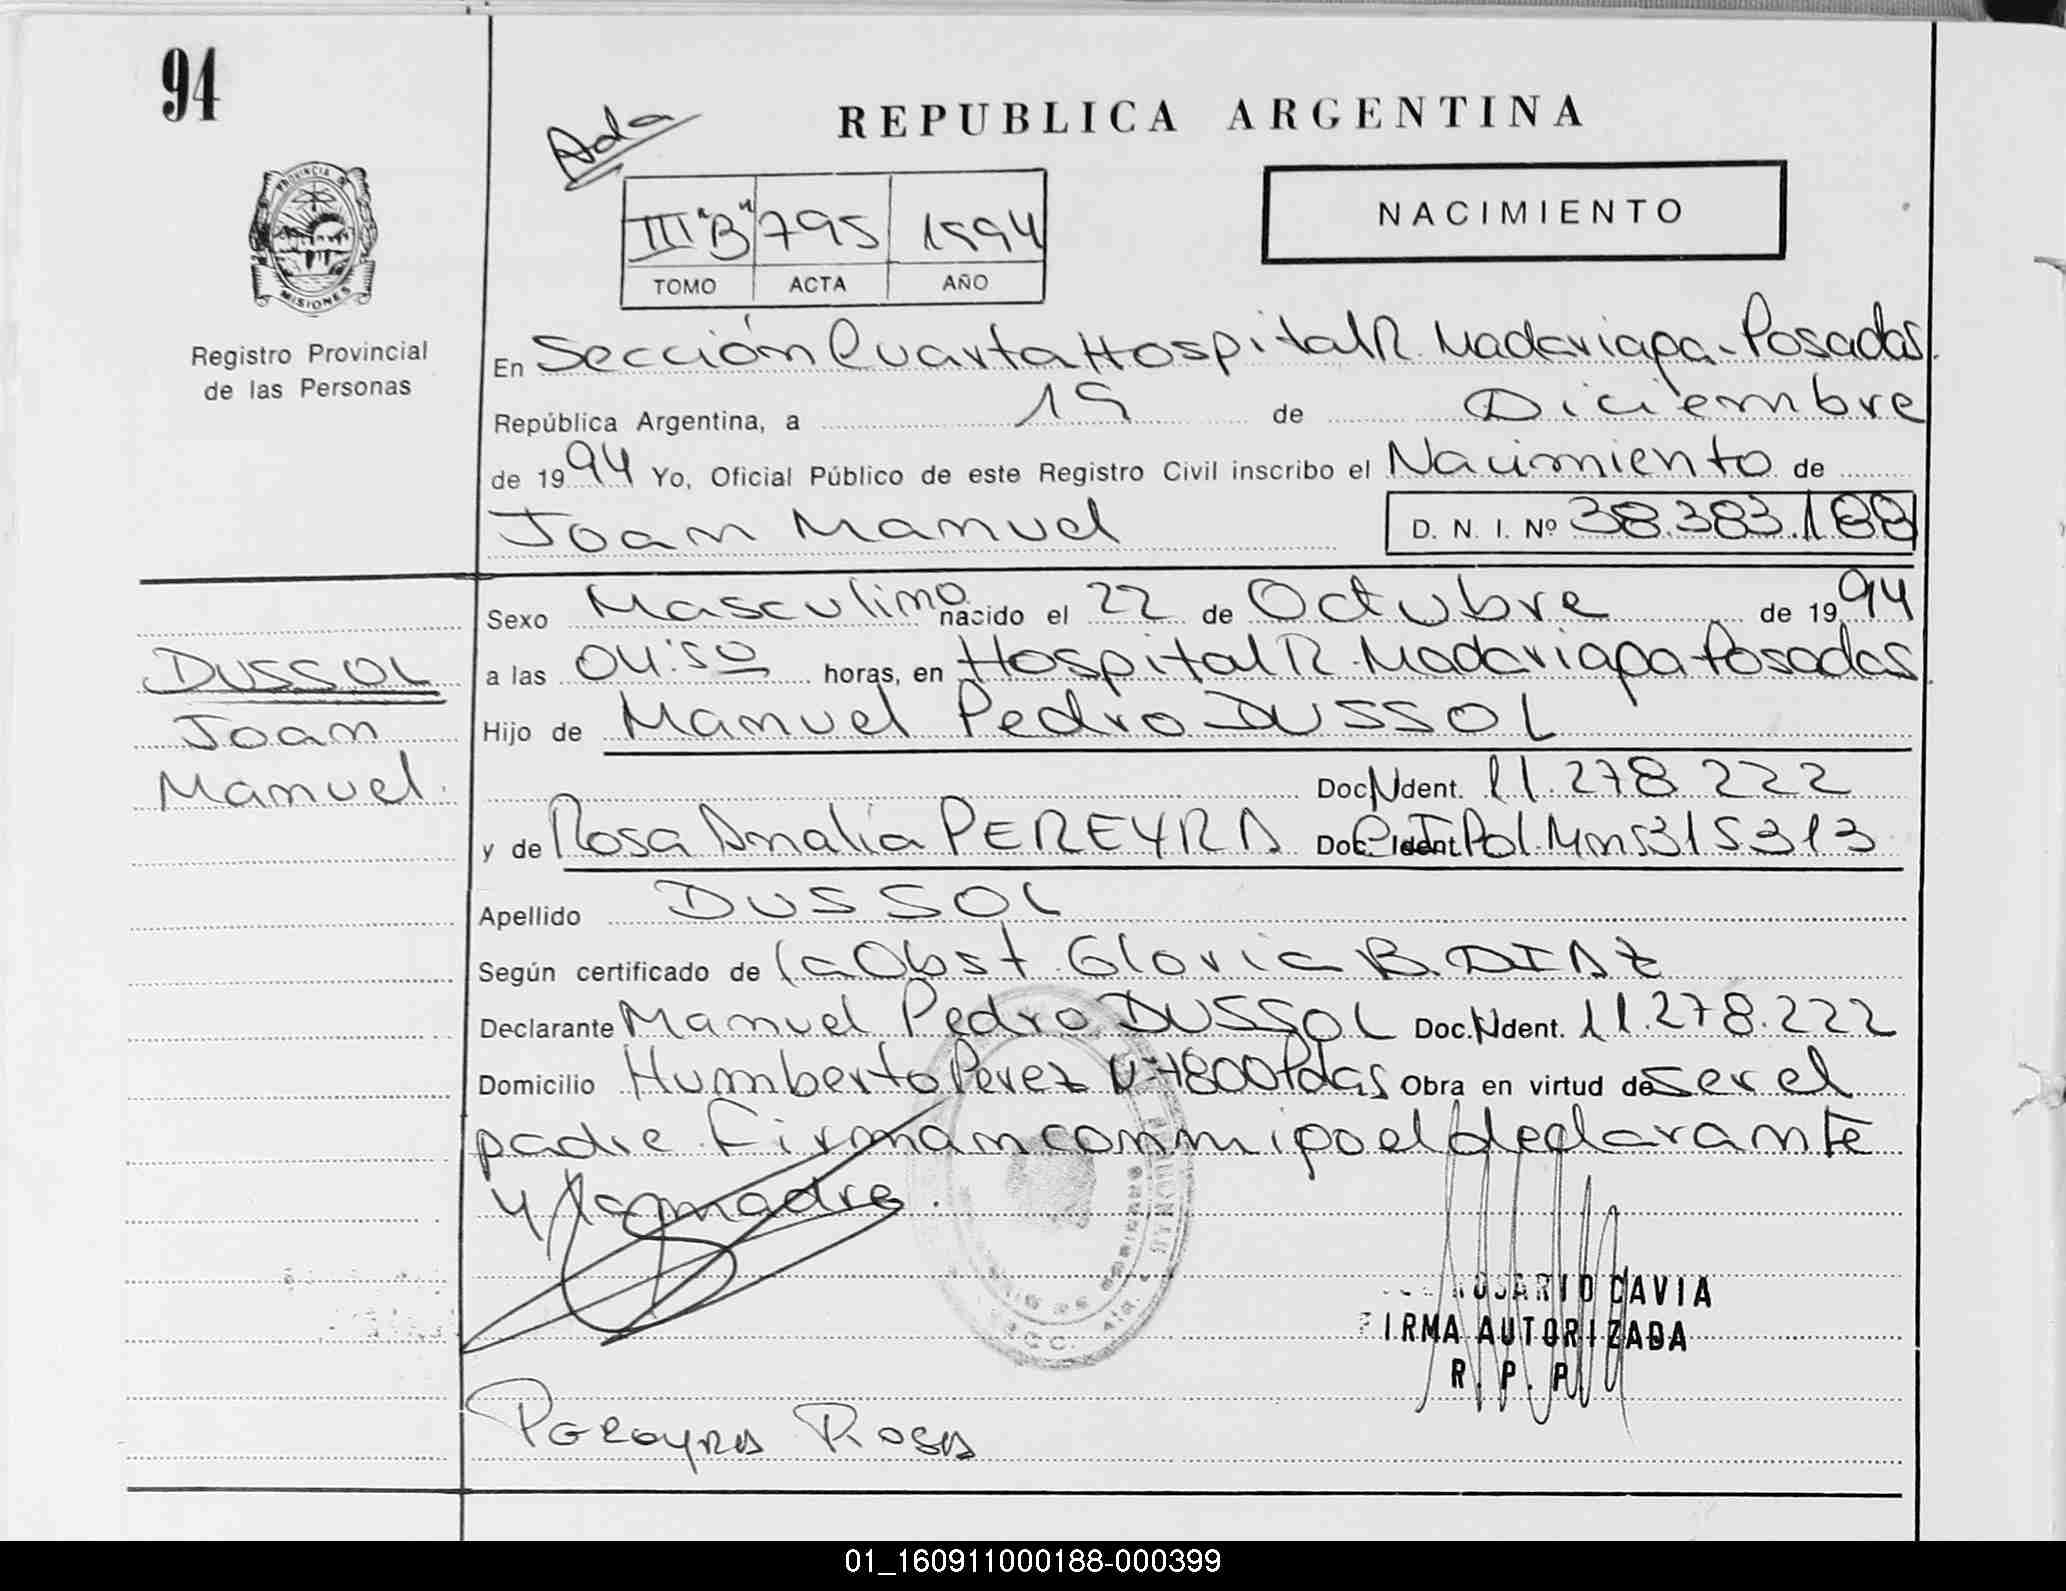 94
REPUBLICA ARGENTINA
Ada
NACIMIENTO
III "B" 795 1994
TOMO ACTA AÑO
PROVINCIA DE
MISIONES
Registro Provincial
de las Personas
En Sección Cuarta Hospital R. Madariaga - Posadas.
República Argentina, a 19 de Diciembre
de 1994 Yo, Oficial Público de este Registro Civil inscribo el Nacimiento de
Joan Manuel D. N. I. Nº 38.383.188
Sexo Masculino nacido el 22 de Octubre de 1994
DUSSOL
a las 04:50 horas, en Hospital R. Madariaga Posadas
Joan
Hijo de Manuel Pedro DUSSOL
Manuel.
Doc. N Ident. 11.278.222
y de Rosa Amalia PEREYRA Doc. Ident. C.I. Pol. Mns 315313
Apellido DUSSOL
Según certificado de la Obst. Gloria B. DIAZ
Declarante Manuel Pedro DUSSOL Doc. N Ident. 11.278.222
Domicilio Humberto Perez Nº 1800 Pdas Obra en virtud de ser el
padre. Firman conmigo el declarante
y la madre.
ROSARIO DAVIA
FIRMA AUTORIZADA
R. P. P.
Pereyra Rosa
01_160911000188-000399